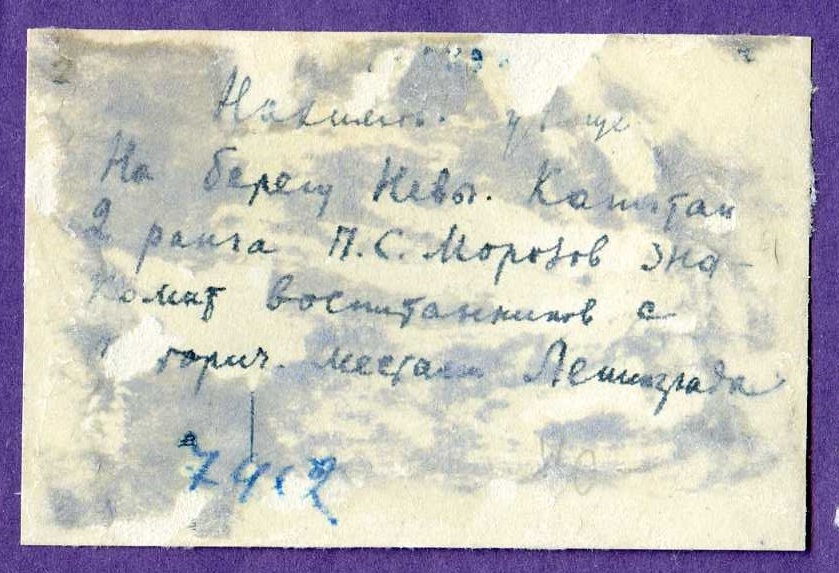 Нахимов. у
На берегу Невы. Капитан
2 ранга П.С. Морозов зна-
комит воспитанников с
торич. местами Ленинграда